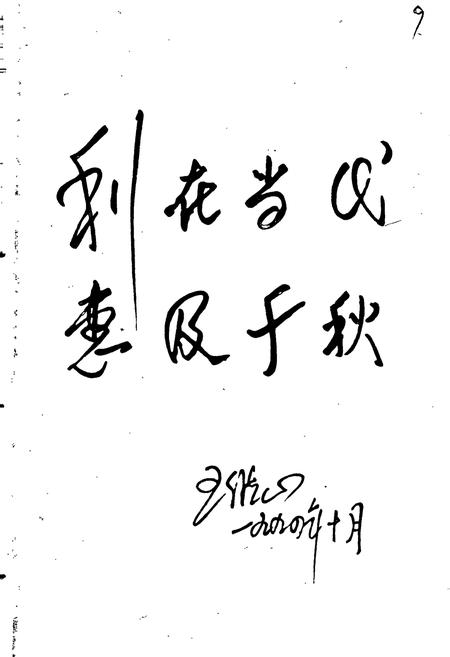 9
利在当代
惠及千秋
一九九年十月